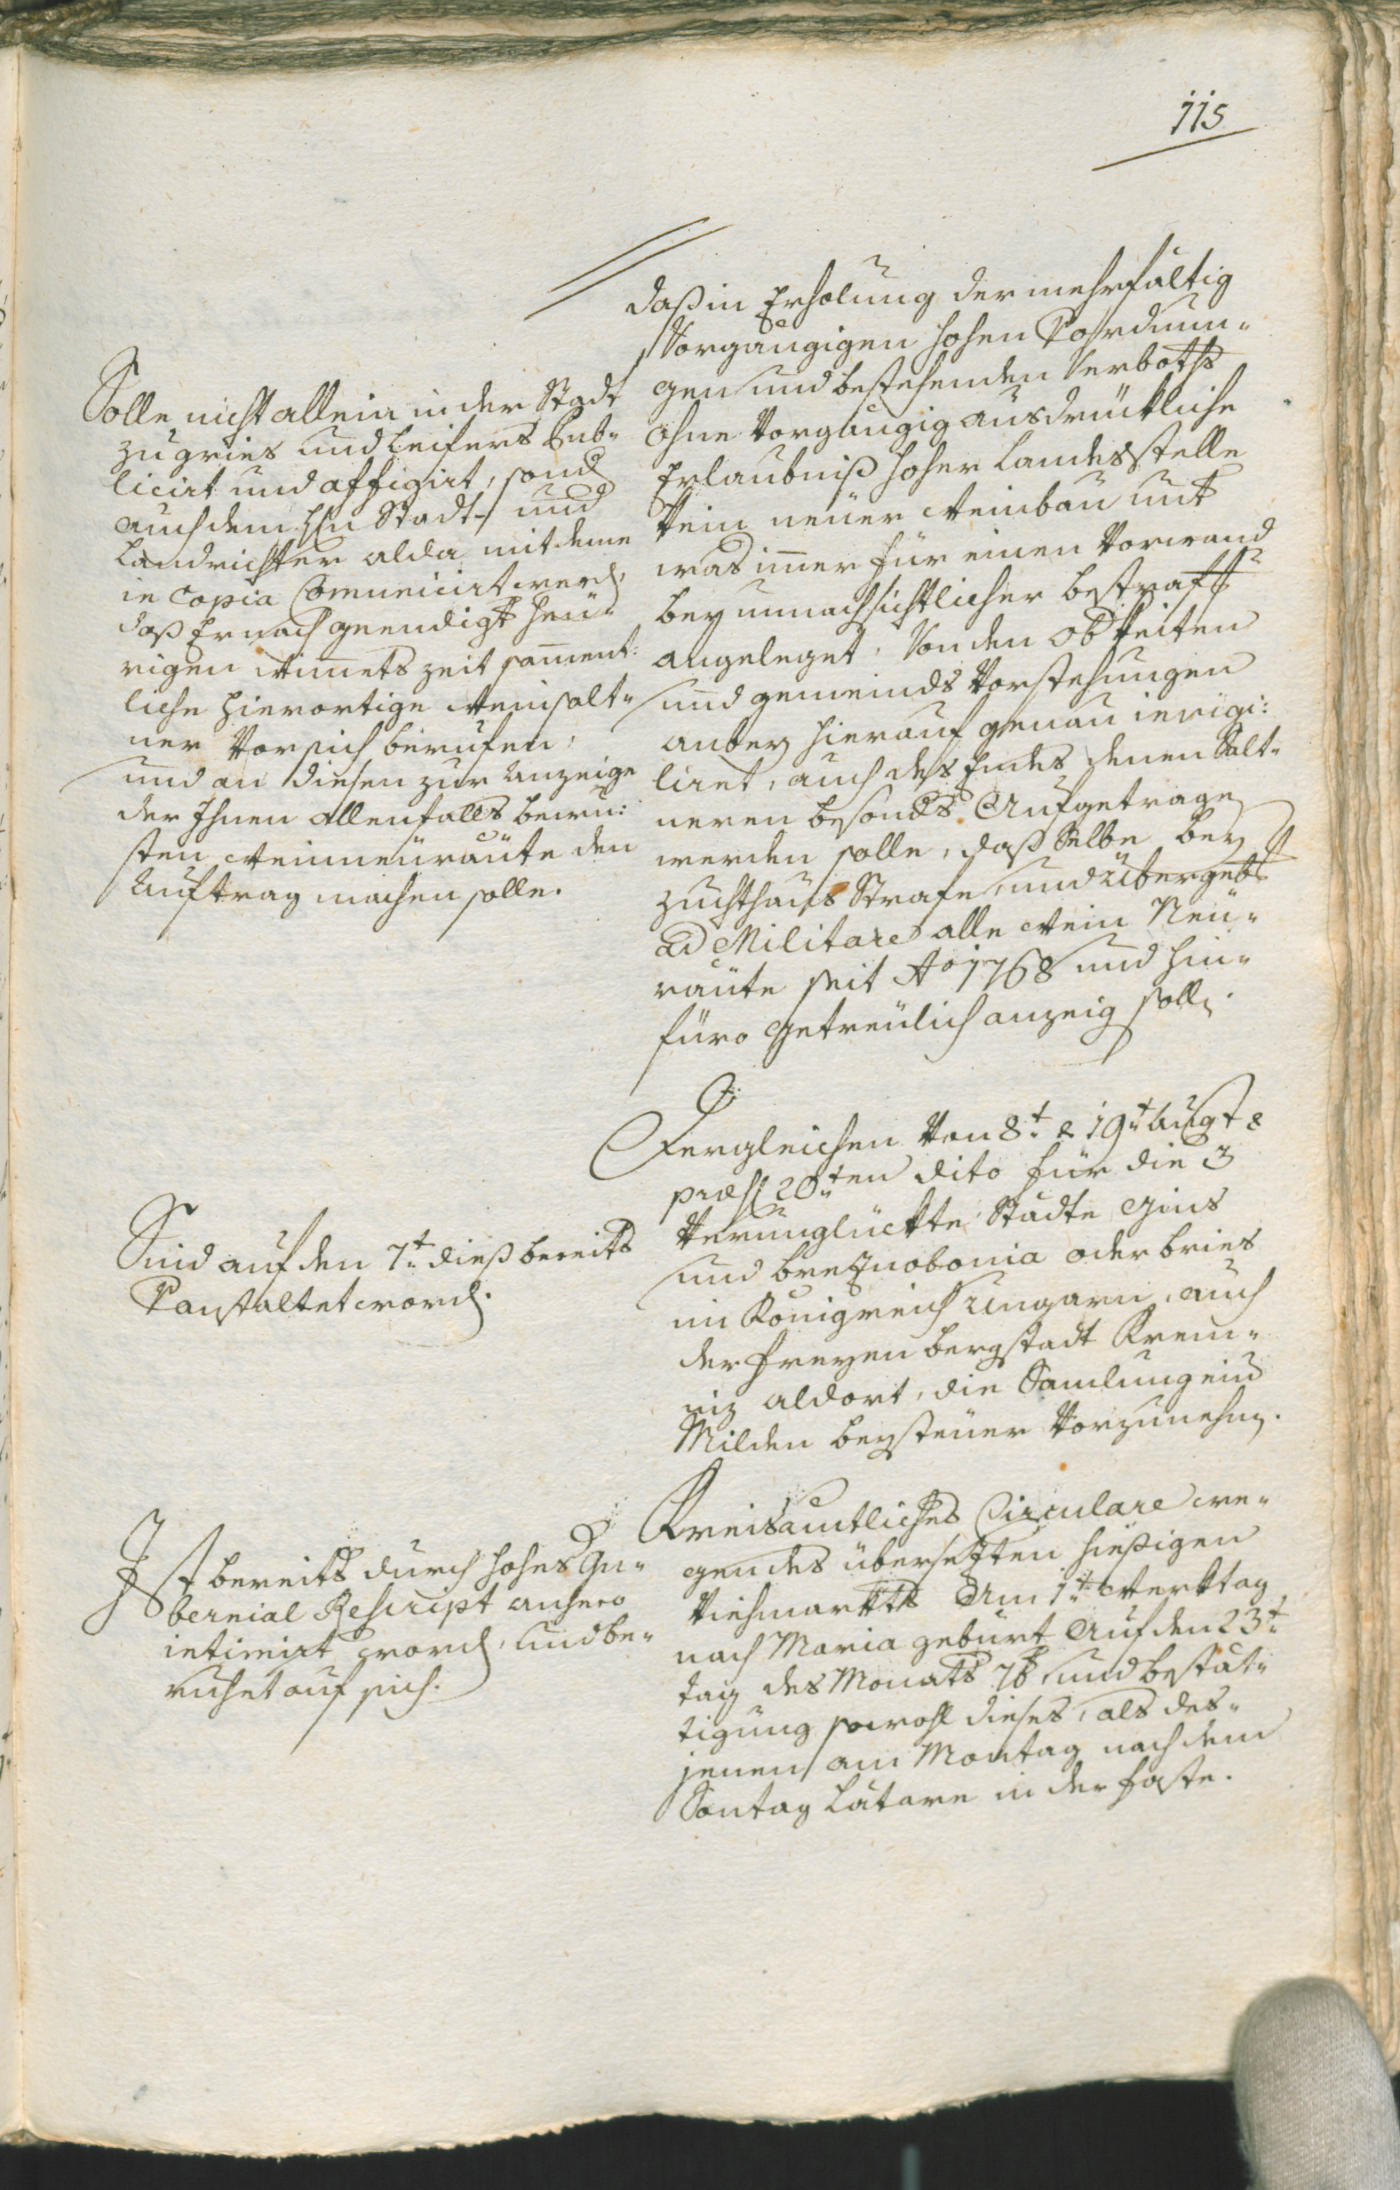 115
daß in Erholung der mehrfältig
Vorgängigen hohen Verordnun-
gen und bestehenden Verboths
ohne Vorgängig ausdrückliche
Erlaubniß hoher Landesstelle
kein neüer Weinbau unt
was imer für einen Vorwand
bey unnachsichtlicher bestraff
angeleget, Von den Obkeiten
und gemeinds Vorstehungen
anbey hierauf genau invigi:
liret, auch des Endes denen Salt-
neren besonds Aufgetragen
werden solle, daß Selbe bey
Zuchthaus Strafe und Übergebg
ad Militare alle Wein Neü-
raüte seit Ao 1768 und hin-
füro getreülich anzeig solln.
Solle nicht allein in der Stadt
zu gries und Leifers Pub-
licirt und affigirt, sond
auch dem Hln Stadt- und
Landrichter alda mit deme
in Copia Comunicirt werd,
daß Er nach geendigt heü-
rigen Wimets zeit sament-
liche hierortige Weinsalt-
ner Vor sich berufen,
und an diesen zur Anzeige
der Ihnen allenfalls bewu-
sten Weinneüraüte den
Auftrag machen solle.
Dergleichen Von 8t & 19t Augst &
præs 20ten dito für die 3
Verunglückte Städte Gins
und breznobonia oder bries
im Königreich Ungarn, auch
der freyen bergstadt Krem-
niz aldort, die Samlung eind
Milden beysteüer Vorzunehmn.
Sind auf den 7t dieß bereits
Veranstaltet word.
Kreisamtliches Circulare we-
gen des übersezten hießigen
Viehmarkts Am 1t Werktag
nach Maria geburt Auf den 23t
tag des Monats 7b und bestät-
tigung sowohl dieses, als des-
jenen am Montag nach dem
Sontag Lätare in der faste.
Ist bereits durch hohes Gu-
bernial Rescript anhero
intimirt word, und be-
ruhet auf sich.